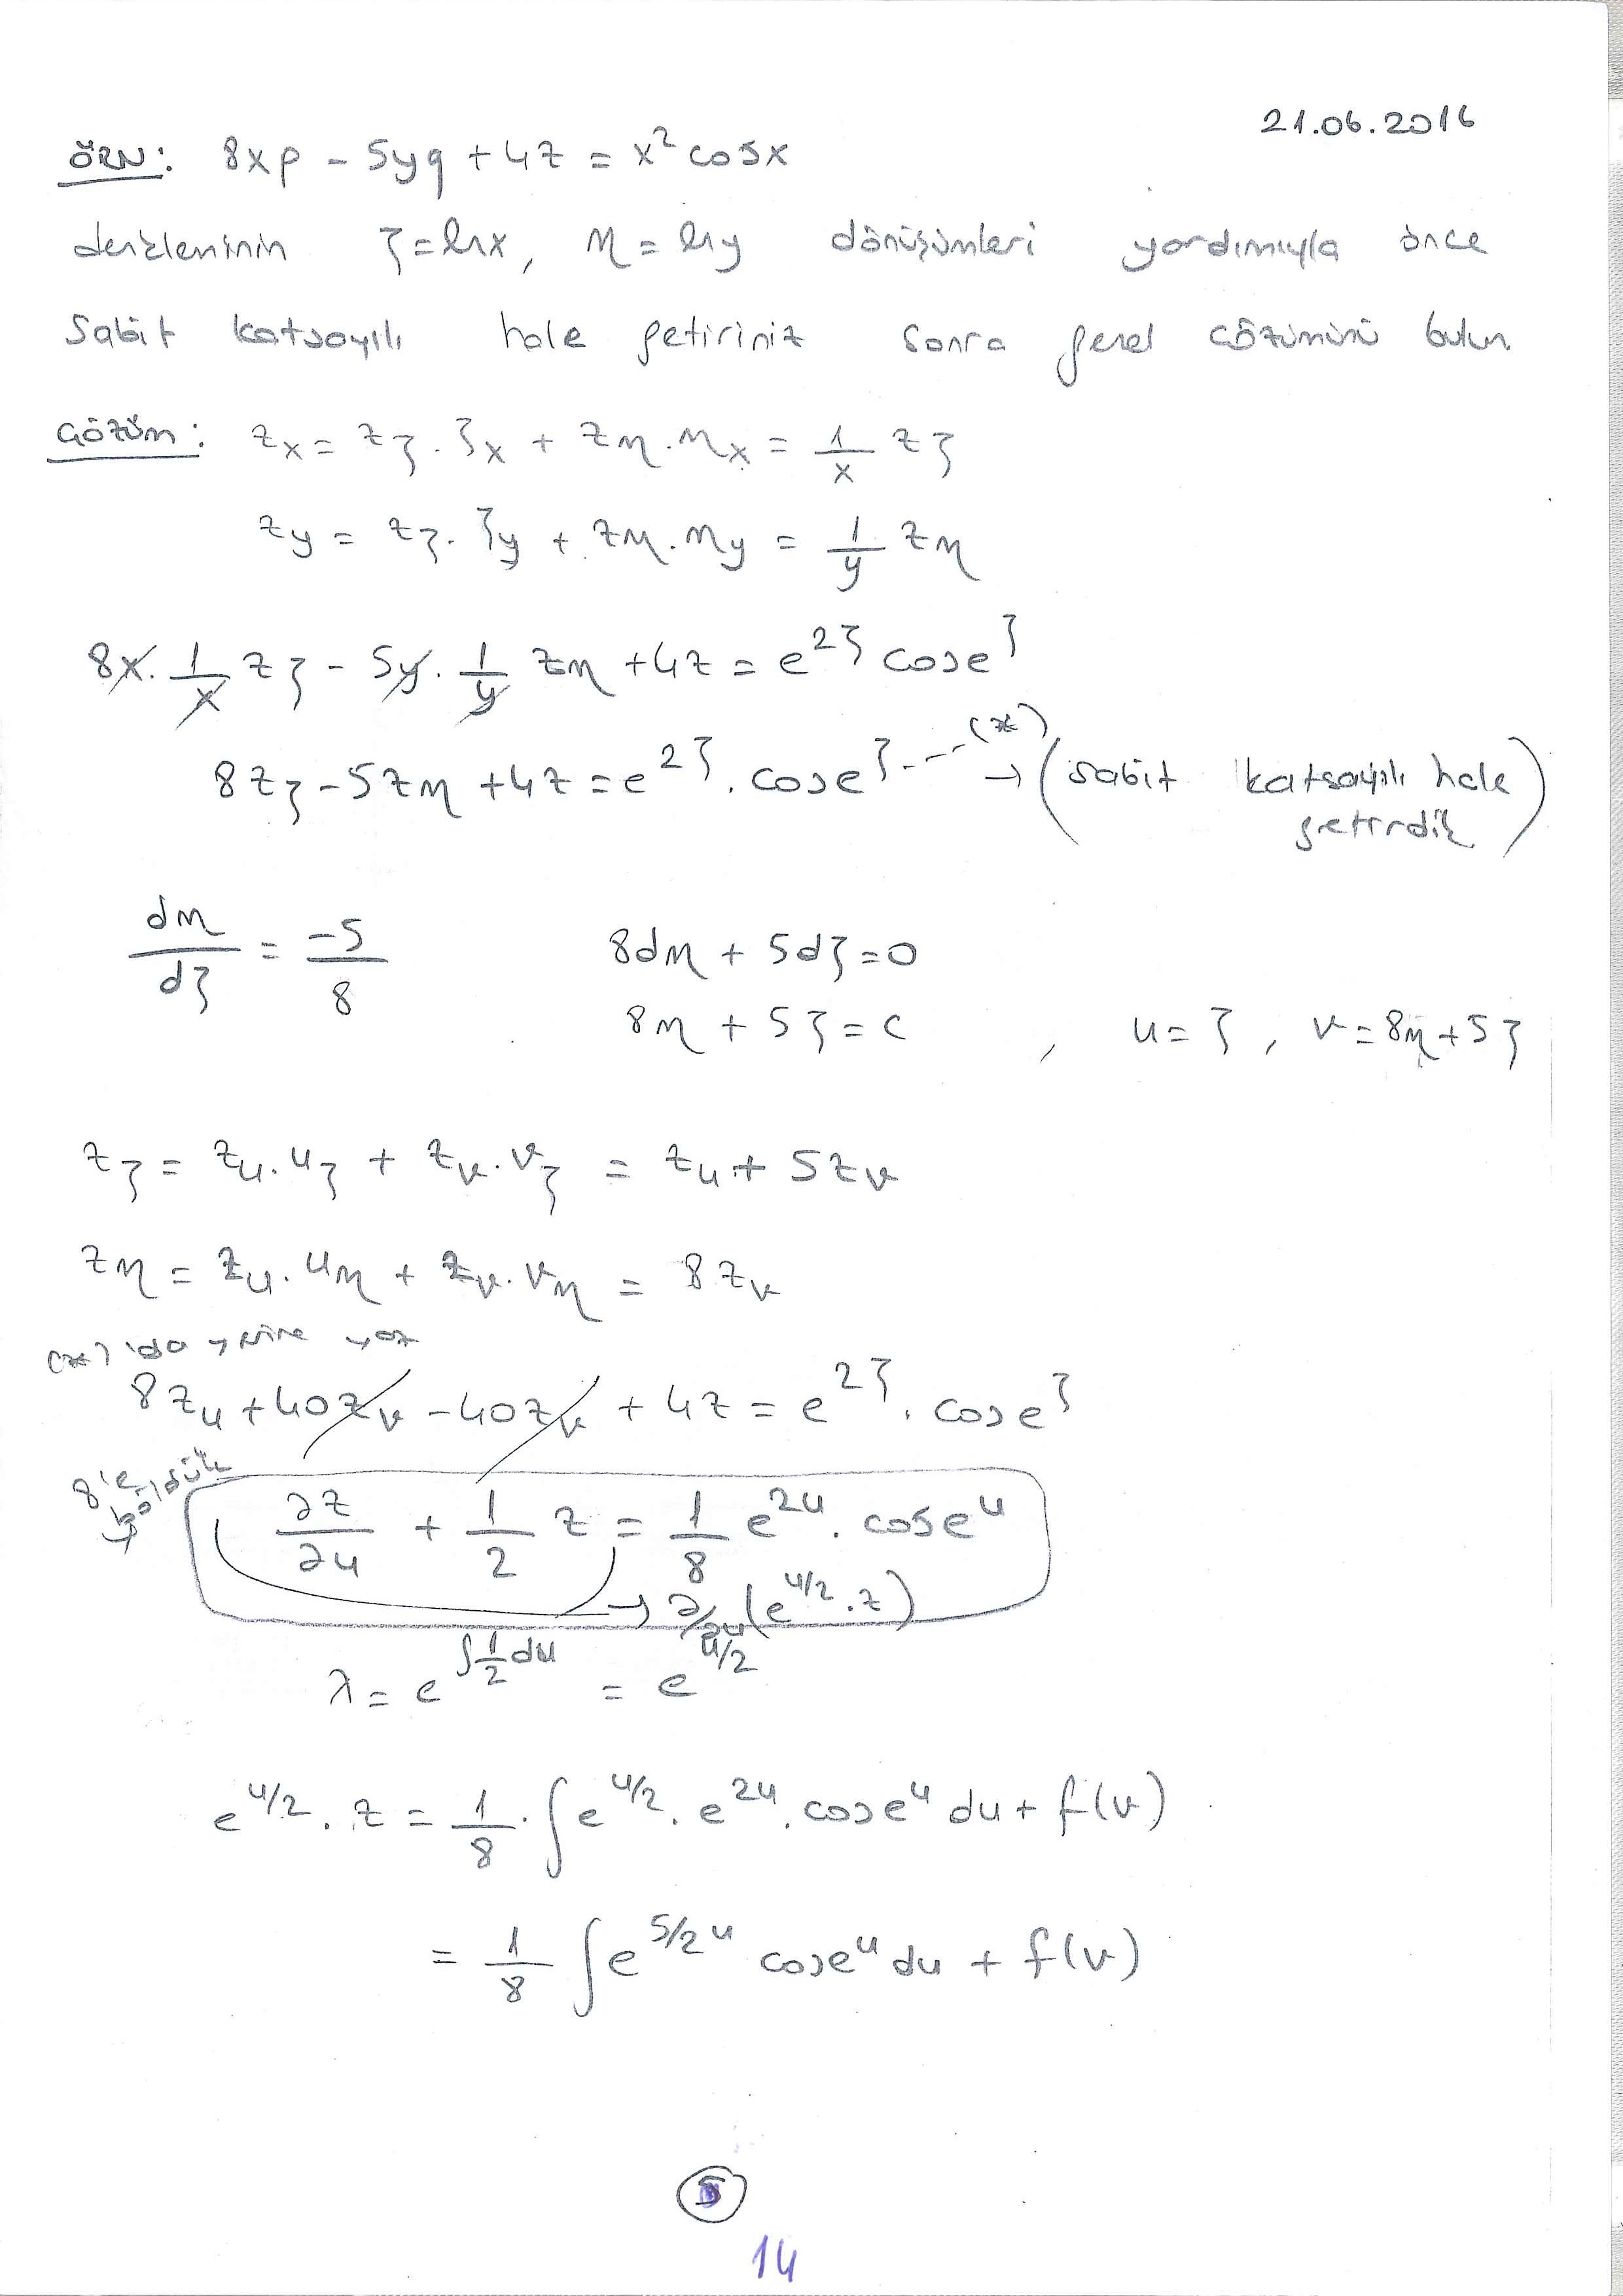 21.06.2016
ÖRN: 8xp - 5yq + 4z = x² cosx
denkleminin ξ = lnx, η = lny dönüşümleri yardımıyla önce
Sabit katsayılı hale getiriniz sonra genel çözümünü bulun.
Çözüm: z_x = z_ξ . ξ_x + z_η . η_x = 1/x z_ξ
z_y = z_ξ . ξ_y + z_η . η_y = 1/y z_η
8x . 1/x z_ξ - 5y . 1/y z_η + 4z = e^{2ξ} cose^ξ
8z_ξ - 5z_η + 4z = e^{2ξ} . cose^ξ --- (*) → (sabit katsayılı hale getirdik)
dη/dξ = -5/8 8dη + 5dξ = 0
8η + 5ξ = c , u = ξ , v = 8η + 5ξ
z_ξ = z_u . u_ξ + z_v . v_ξ = z_u + 5z_v
z_η = z_u . u_η + z_v . v_η = 8z_v
(*) 'da yerine yaz
8z_u + 40z_v - 40z_v + 4z = e^{2ξ} . cose^ξ
8'e böldük
∂z/∂u + 1/2 z = 1/8 e^{2u} . cose^u
→ ∂/∂u (e^{u/2} . z)
λ = e^{∫1/2 du} = e^{u/2}
e^{u/2} . z = 1/8 . ∫ e^{u/2} . e^{2u} . cose^u du + f(v)
= 1/8 ∫ e^{5/2 u} cose^u du + f(v)
5
14